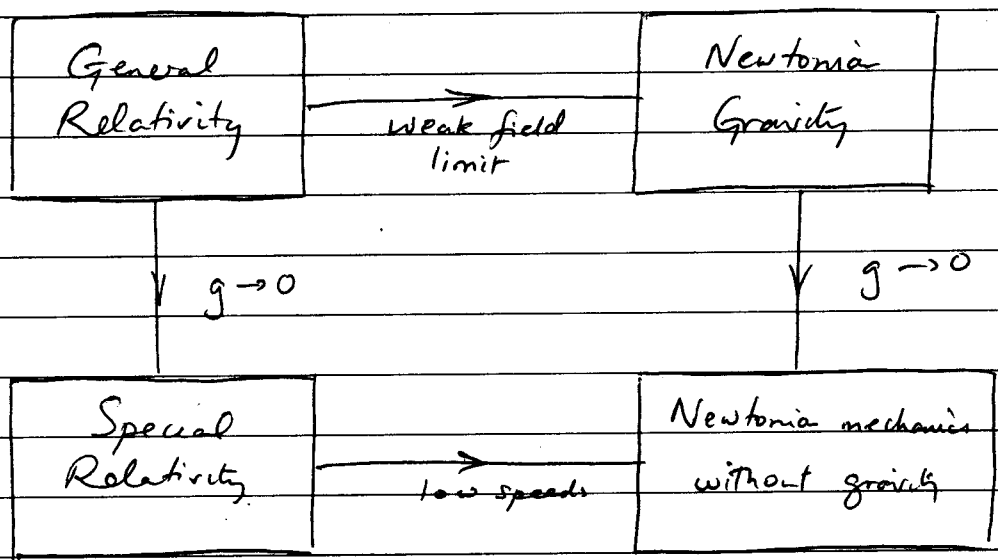 General
Relativity
weak field
limit
Newtonia
Gravity
g → 0
g → 0
Special
Relativity
low speeds
Newtonia mechanics
without gravity